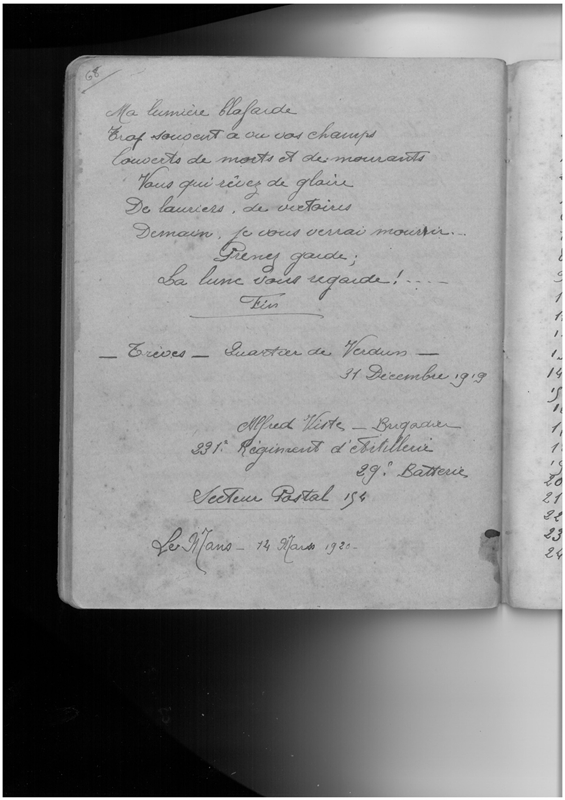 68
Ma lumière blafarde
Trop souvent a vu vos champs
Couverts de morts et de mourants
Vous qui rêvez de gloire
De lauriers, de victoires
Demain, je vous verrai mourir...
Prenez garde;
La lune vous regarde!....
Fin
— Trèves — Quartier de Verdun —
31 Décembre 1919
Alfred Viste — Brigadier
231e Régiment d'Artillerie
29e Batterie
Secteur Postal 154
Le Mans - 14 Mars 1920-
14
20
21
22
23
24